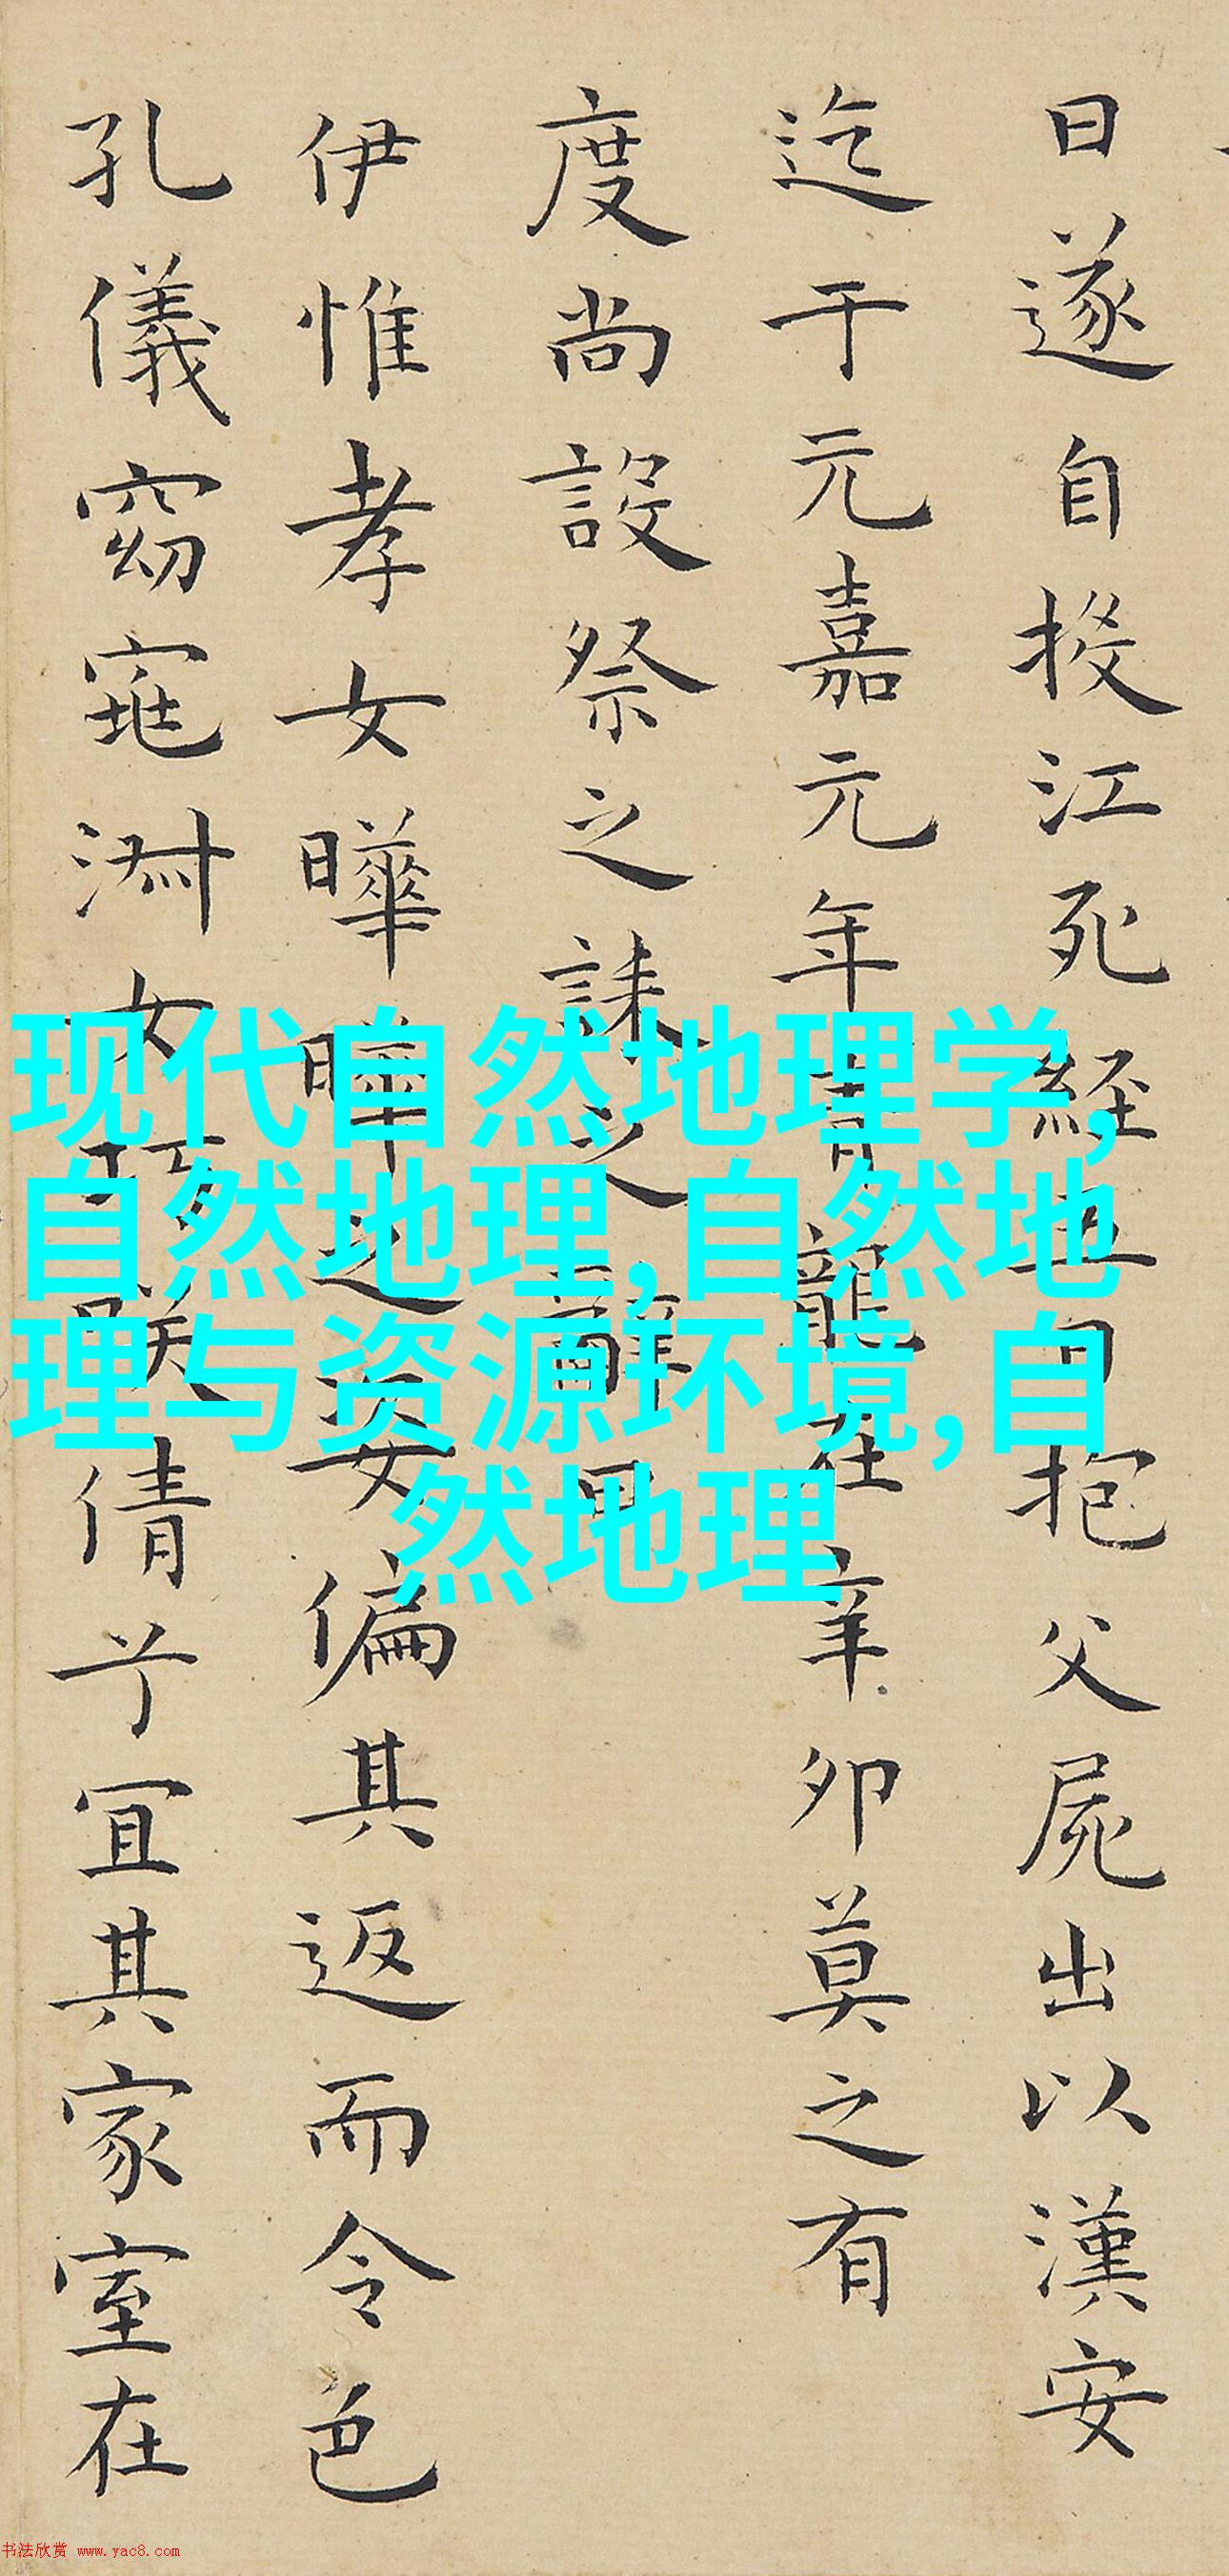 日遂自投江死經五日抱父屍出以漢安
迄于元嘉元年青龍在辛卯莫之有
度尚設祭之誄之辭曰
伊惟孝女曄曄之姿偏其返而令色
孔儀窈窕淑女巧笑倩兮宜其家室在
现代自然地理学,
自然地理,自然地
理与资源环境,自
然地理
书法欣赏 www.yac8.com